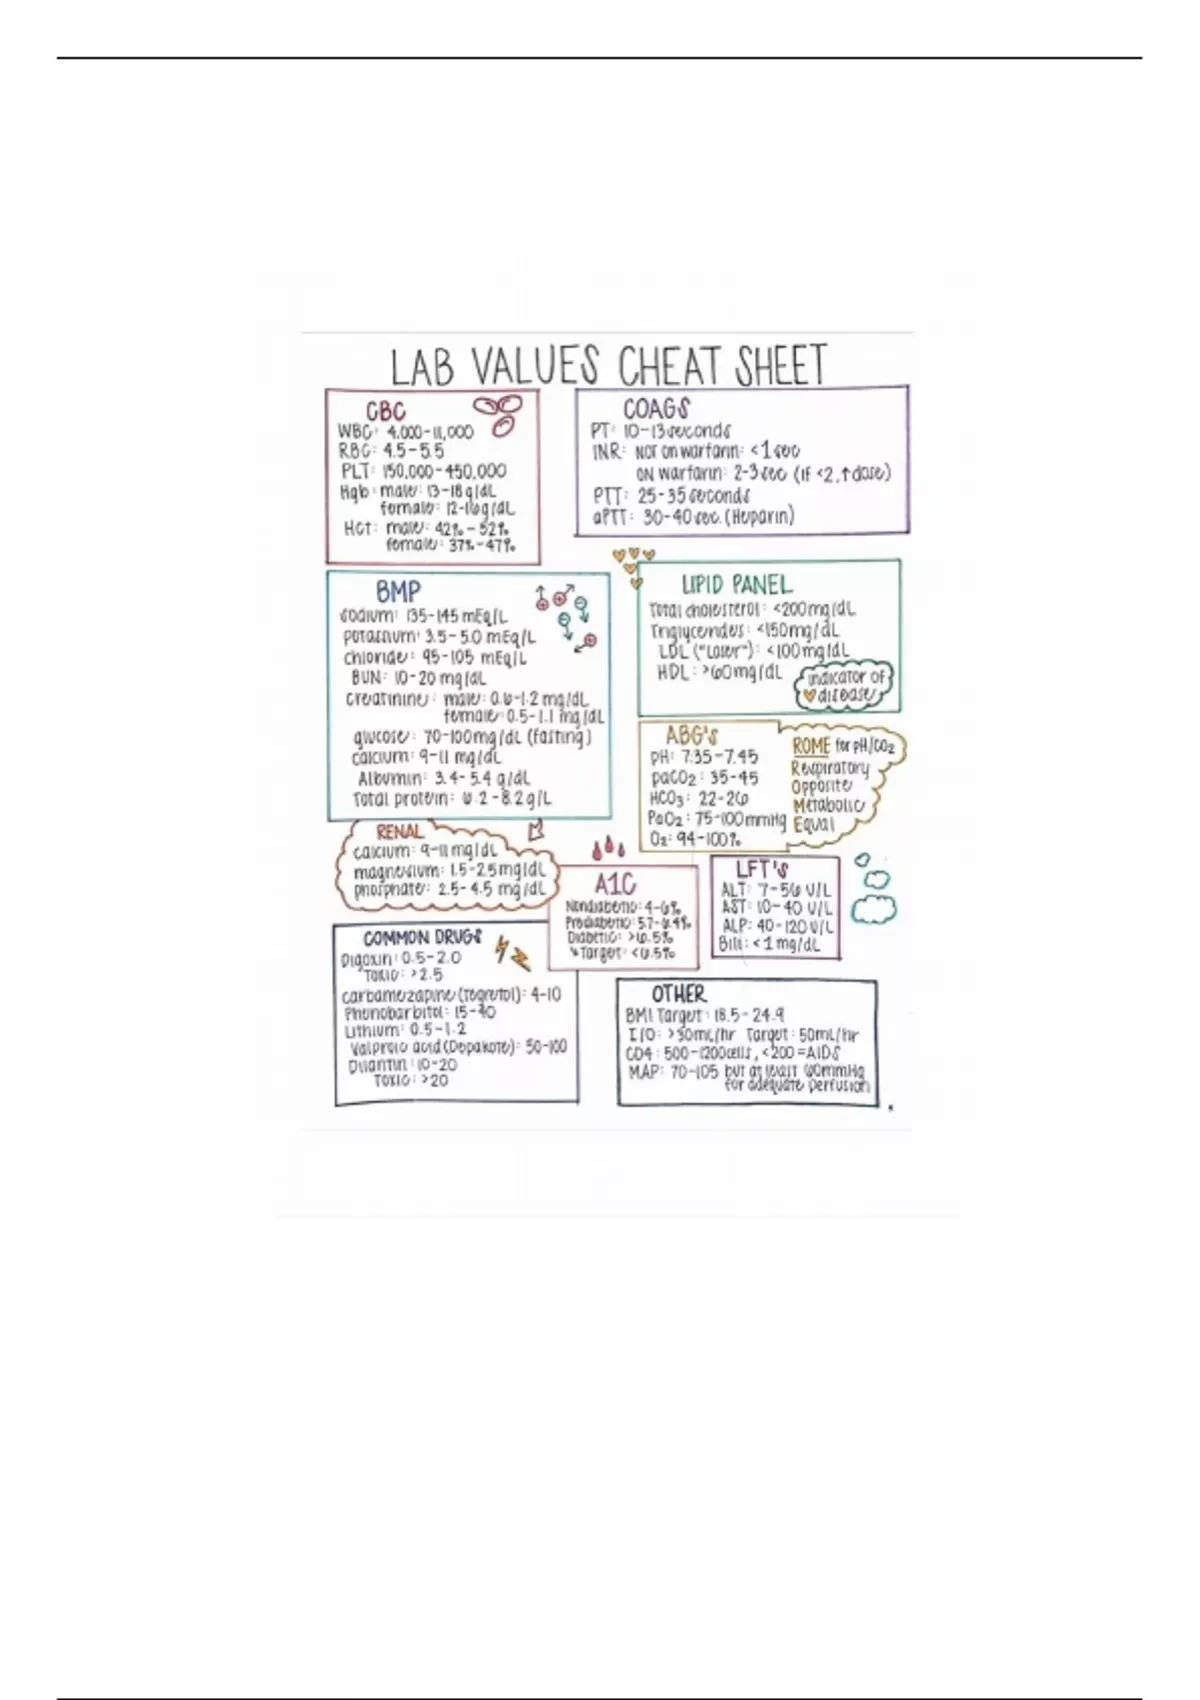 LAB VALUES CHEAT SHEET
CBC
WBC: 4,000-11,000
RBC: 4.5-5.5
PLT: 150,000-450,000
Hgb: male: 13-18g/dL
female: 12-16g/dL
Hct: male: 42%-52%
female: 37%-47%
COAGS
PT: 10-13 seconds
INR: NOT on warfarin: <1 sec
ON warfarin: 2-3 sec (IF <2, ↑ dose)
PTT: 25-35 seconds
aPTT: 30-40 sec. (Heparin)
BMP
sodium: 135-145 mEq/L
potassium: 3.5-5.0 mEq/L
chloride: 95-105 mEq/L
BUN: 10-20 mg/dL
creatinine: male: 0.6-1.2 mg/dL
female: 0.5-1.1 mg/dL
glucose: 70-100mg/dL (fasting)
calcium: 9-11 mg/dL
Albumin: 3.4-5.4 g/dL
Total protein: 6.2-8.2 g/L
LIPID PANEL
Total cholesterol: <200mg/dL
Triglycerides: <150mg/dL
LDL ("Loser"): <100mg/dL
HDL: >60mg/dL
indicator of
disease
ABG's
pH: 7.35-7.45
paCO2: 35-45
HCO3: 22-26
PaO2: 75-100mmHg
O2: 94-100%
ROME for pH/CO2
Respiratory
Opposite
Metabolic
Equal
RENAL
calcium: 9-11 mg/dL
magnesium: 1.5-2.5mg/dL
phosphate: 2.5-4.5 mg/dL
A1C
Nondiabetic: 4-6%
Prediabetic: 5.7-6.4%
Diabetic: >6.5%
↳Target: <6.5%
LFT's
ALT: 7-56 U/L
AST: 10-40 U/L
ALP: 40-120 U/L
Bili: <1 mg/dL
COMMON DRUGS
Digoxin: 0.5-2.0
Toxic: >2.5
carbamezapine (Tegretol): 4-10
Phenobarbitol: 15-40
Lithium: 0.5-1.2
Valproic acid (Depakote): 50-100
Dilantin: 10-20
Toxic: >20
OTHER
BMI Target: 18.5-24.9
I/O: >30mL/hr Target: 50mL/hr
CD4: 500-1200cells, <200=AIDS
MAP: 70-105 but at least 60mmHg
for adequate perfusion